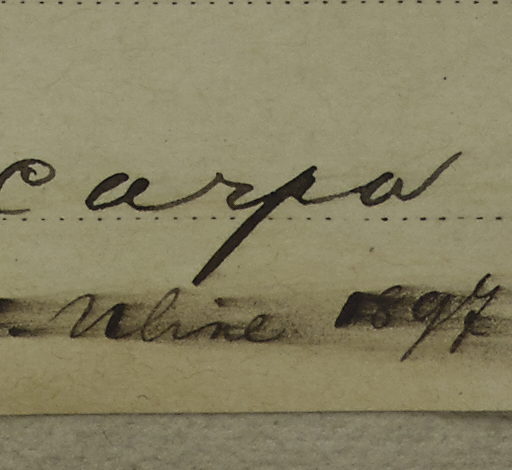 carpa
Uline 1897